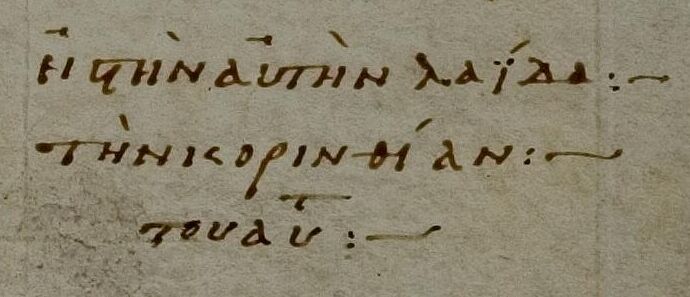 εἰς τὴν αὐτὴν λαΐδα :–
τὴν κορινθίαν :–
του αυτ :–